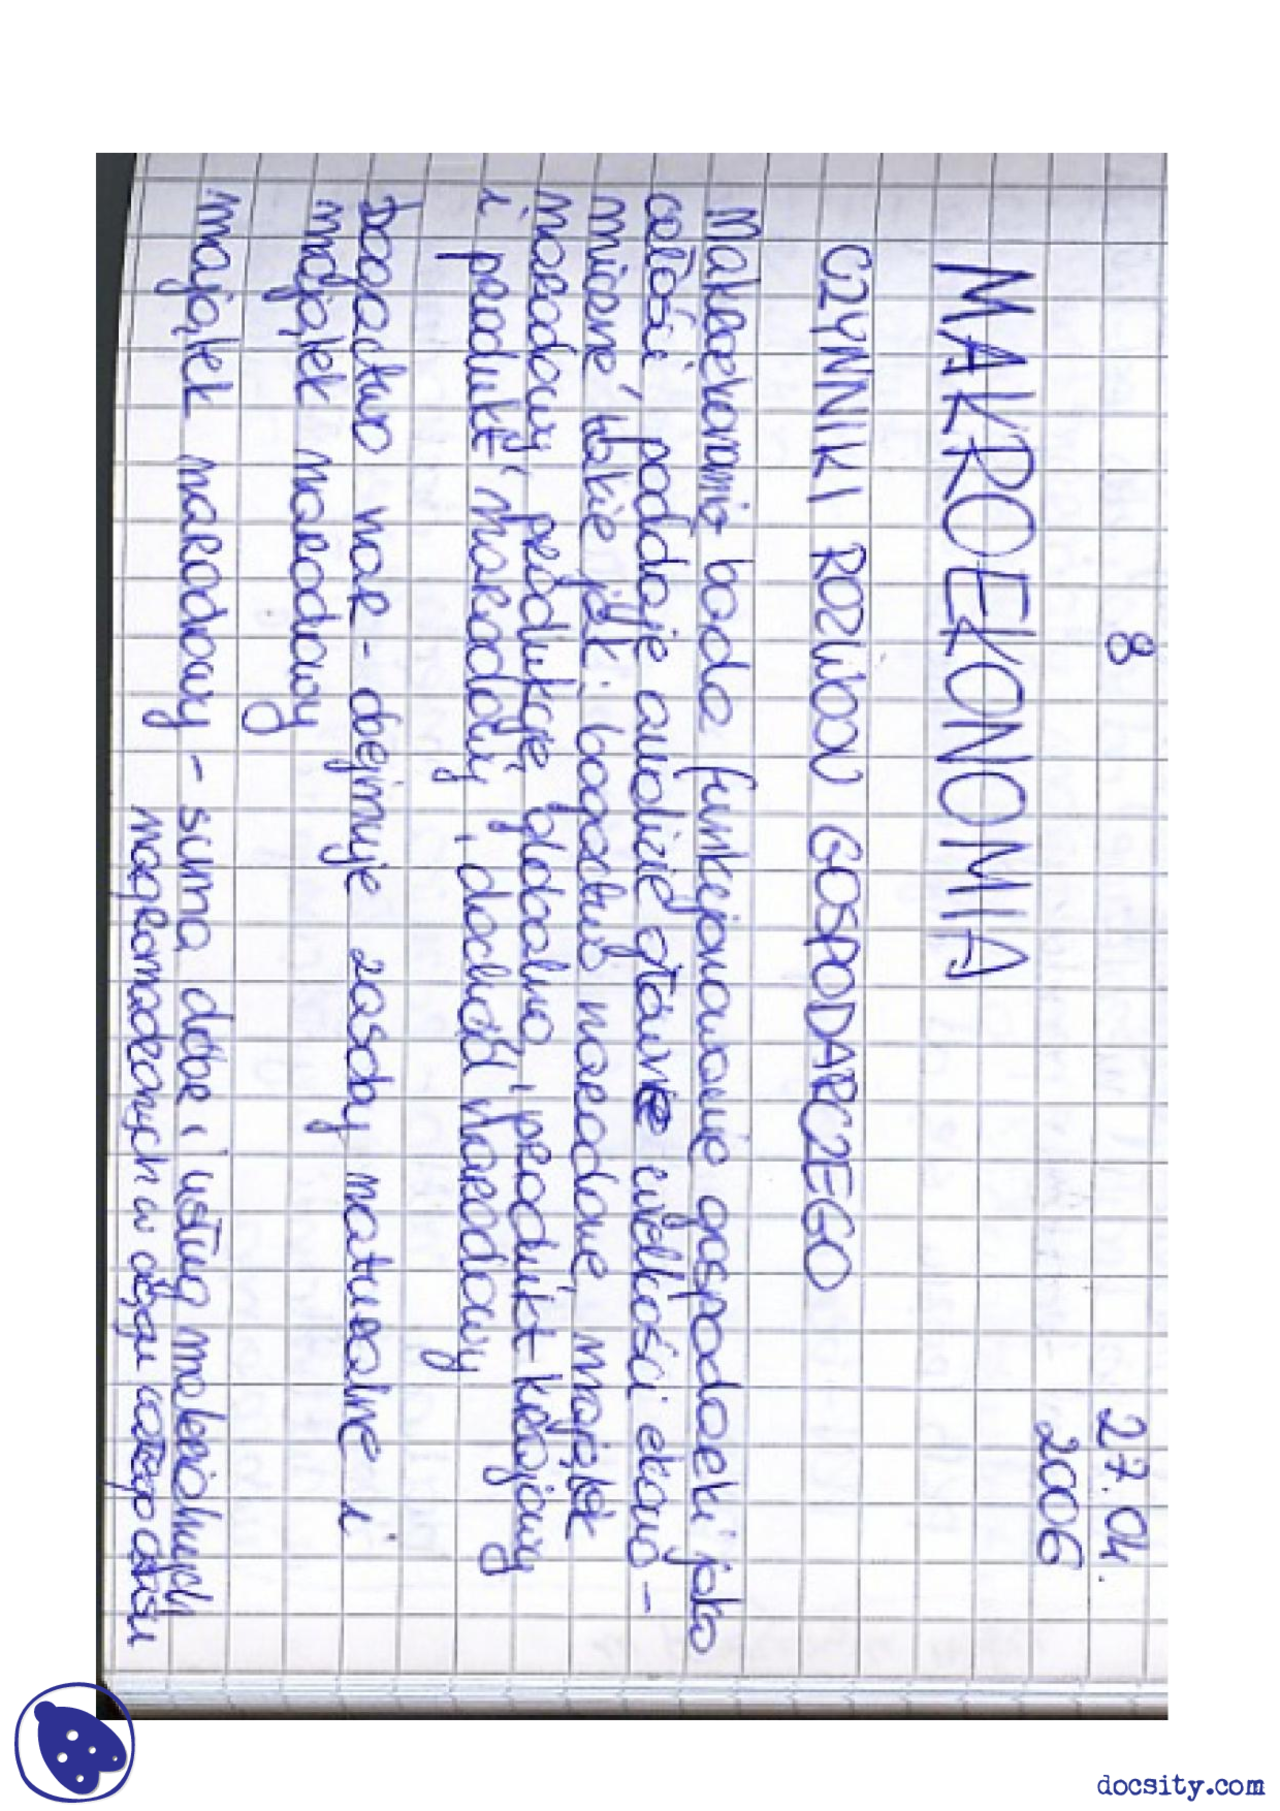 8
27.04.
2006
MAKROEKONOMIA
CZYNNIKI ROZWOJU GOSPODARCZEGO
Makroekonomia bada funkcjonowanie gospodarki jako
całości, poddaje analizie główne wielkości ekono-
miczne takie jak: bogactwo narodowe, majątek
narodowy, produkcję globalną, produkt krajowy
i produkt narodowy, dochód narodowy
Bogactwo nar - obejmuje zasoby naturalne i
majątek narodowy
majątek narodowy - suma dóbr i usług materialnych
nagromadzonych w ciągu całego okresu
docsity.com